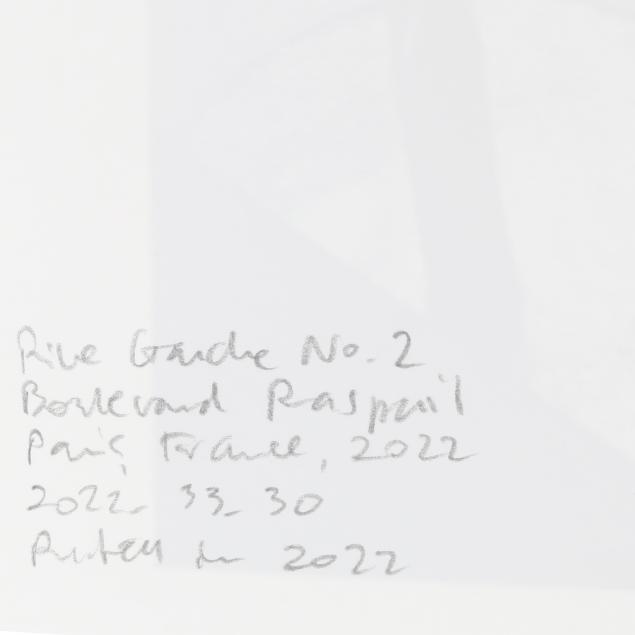 Rive Gauche No. 2
Boulevard Raspail
Paris, France, 2022
2022- 33- 30
Printed in 2022